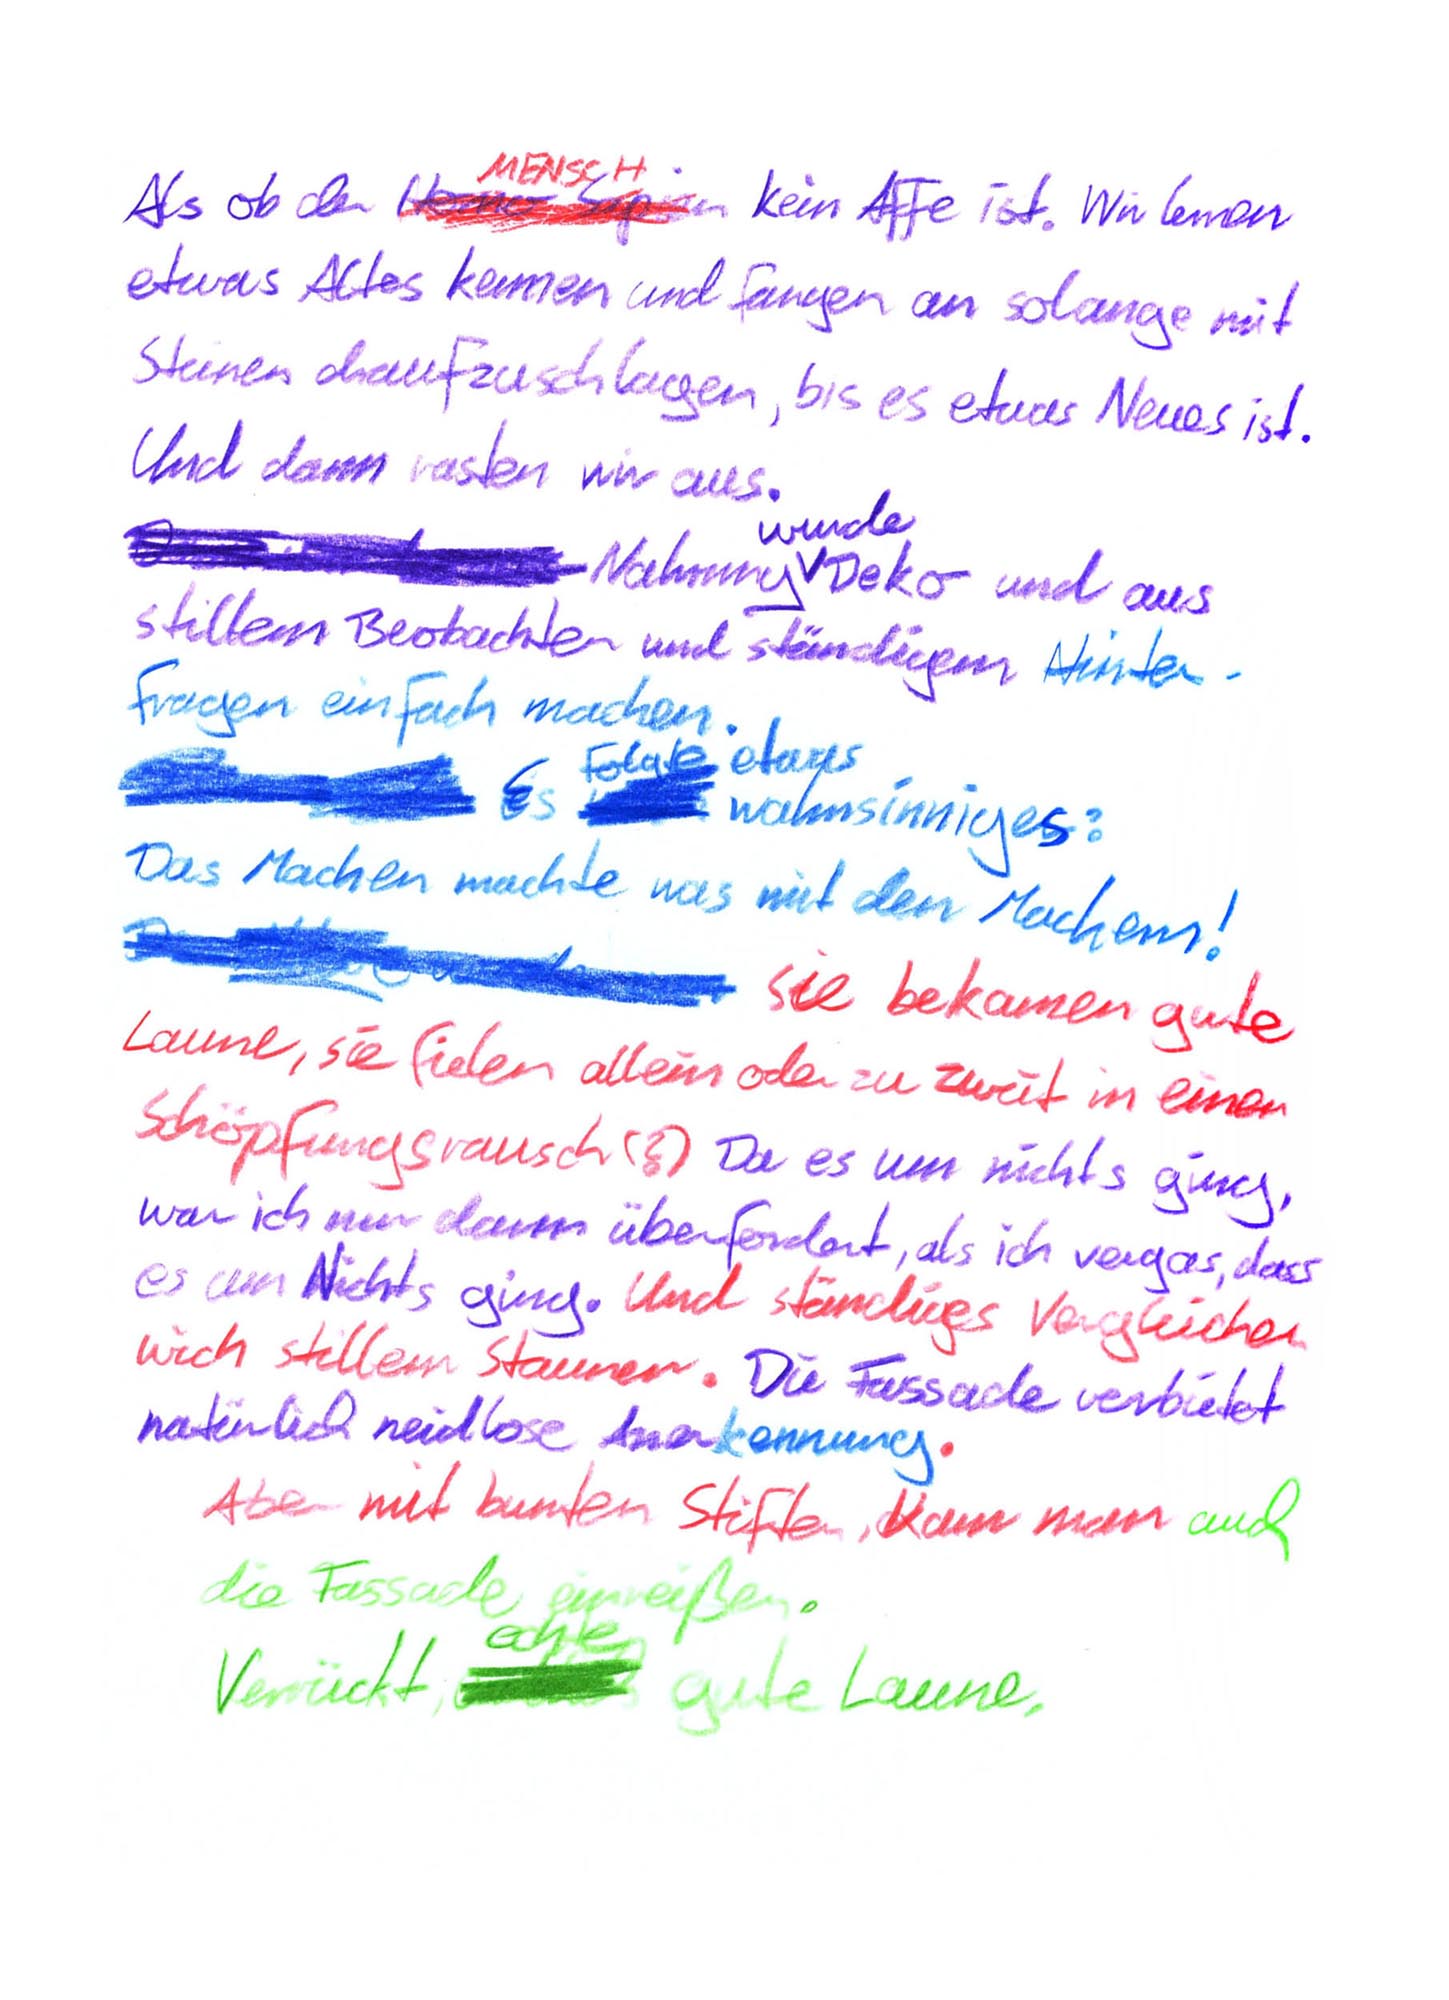 MENSCH
Als ob der Homo Sapien kein Affe ist. Wir lernen
etwas Altes kennen und fangen an solange mit
Steinen draufzuschlagen, bis es etwas Neues ist.
Und dann rasten wir aus.
wurde
Nahrung Deko und aus
stillem Beobachten und ständigem Hinter-
fragen einfach machen.
Folgte etwas
Es wahnsinniges:
Das Machen machte was mit den Machern!
sie bekamen gute
Laune, sie fielen allein oder zu zweit in einen
Schöpfungsrausch(?) Da es um nichts ging,
war ich nur dann überfordert, als ich vergas, dass
es um Nichts ging. Und ständiges Vergleichen
wich stillem Staunen. Die Fassade verbietet
natürlich neidlose Anerkennung.
Aber mit bunten Stiften, kann man auch
die Fassade einreißen.
echte
Verrückt, gute Laune.